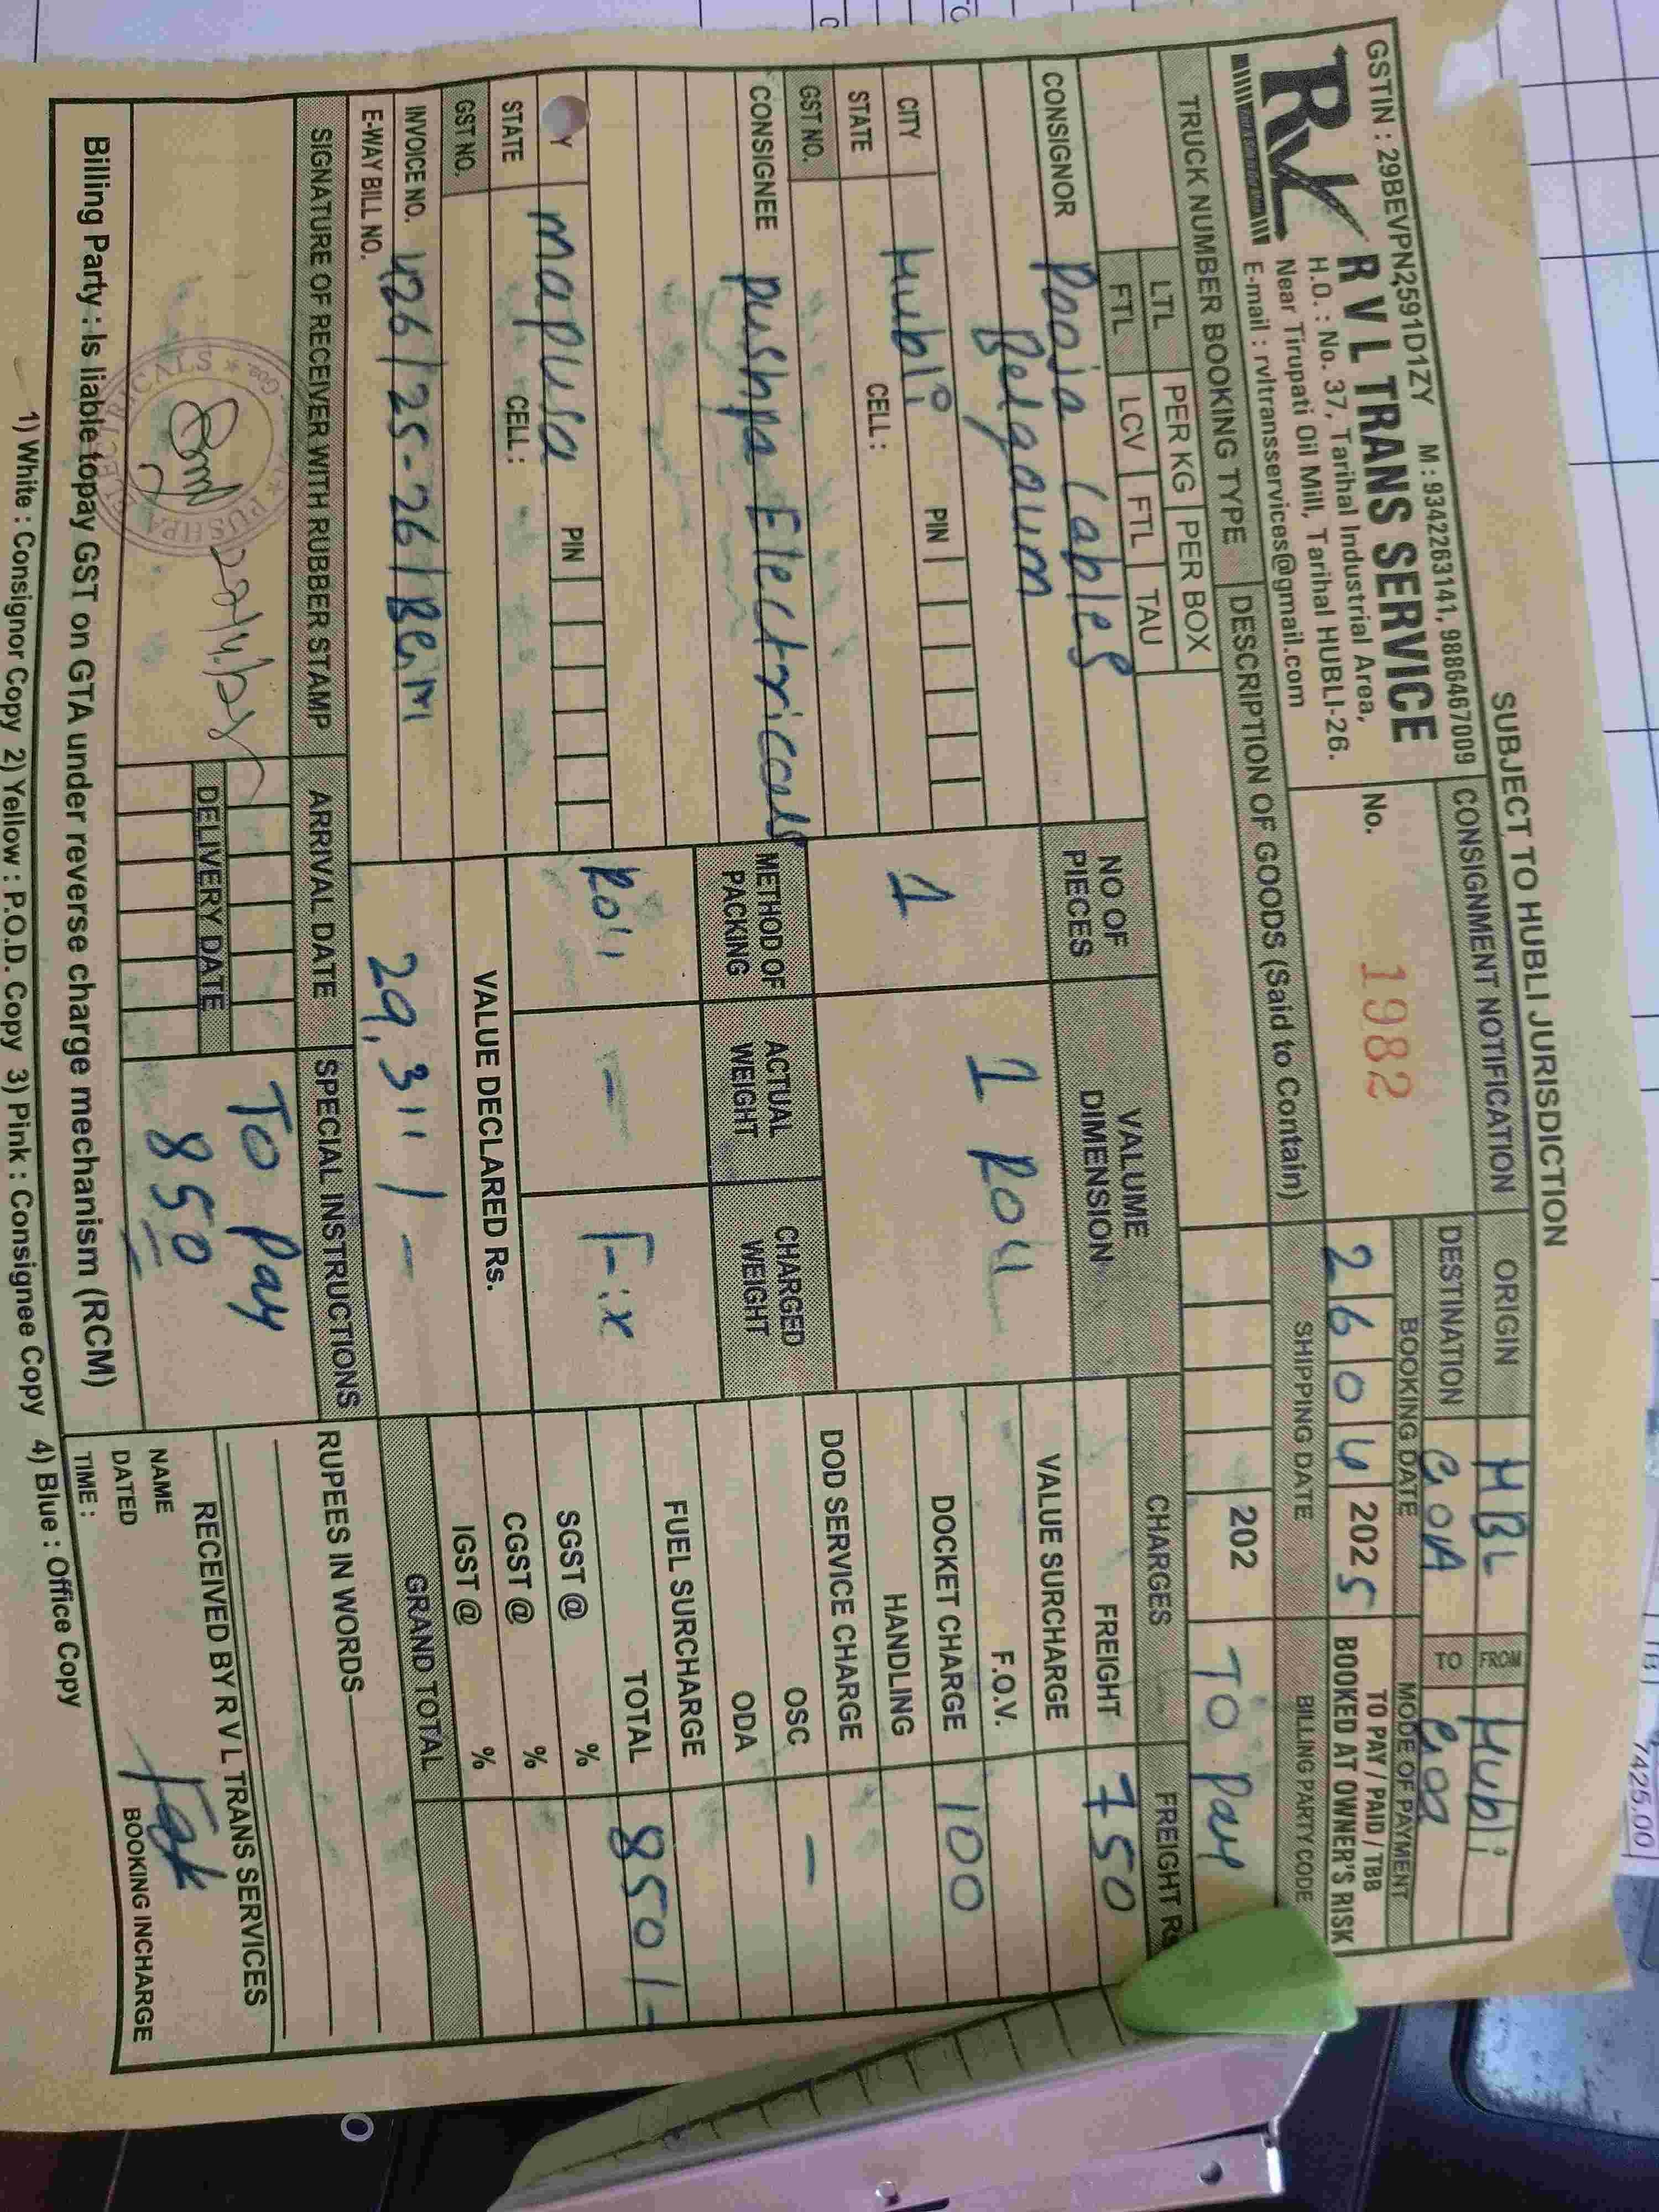 SUBJECT TO HUBLI JURISDICTION
GSTIN : 29BEVPN2591D1ZY M : 9342263141, 9886467009
RVL
R V L TRANS SERVICE
H.O. : No. 37, Tarihal Industrial Area,
Near Tirupati Oil Mill, Tarihal HUBLI-26.
E-mail : rvltransservices@gmail.com
CONSIGNMENT NOTIFICATION
No. 1982
ORIGIN HBL FROM Hubli
DESTINATION GOA TO Goa
BOOKING DATE MODE OF PAYMENT
26 04 2025 TO PAY / PAID / TBB
BOOKED AT OWNER'S RISK
SHIPPING DATE BILLING PARTY CODE
202 TO Pay
TRUCK NUMBER BOOKING TYPE DESCRIPTION OF GOODS (Said to Contain)
LTL PER KG PER BOX
FTL LCV FTL TAU
CONSIGNOR Pooja Cables
Belgaum
CITY Hubli PIN
STATE CELL :
GST NO.
CONSIGNEE pushpa Electricals
Y mapusa PIN
STATE CELL :
GST NO.
INVOICE NO. 426/25-26/Beim
E-WAY BILL NO.
NO OF PIECES VALUME DIMENSION
1 1 Roll
METHOD OF PACKING ACTUAL WEIGHT CHARGED WEIGHT
Roll - Fix
VALUE DECLARED Rs.
29,311/-
CHARGES FREIGHT R
FREIGHT 750
VALUE SURCHARGE
F.O.V.
DOCKET CHARGE 100
HANDLING
DOD SERVICE CHARGE
OSC -
ODA
FUEL SURCHARGE
TOTAL 850/-
SGST @ %
CGST @ %
IGST @ %
GRAND TOTAL
RUPEES IN WORDS
SIGNATURE OF RECEIVER WITH RUBBER STAMP ARRIVAL DATE SPECIAL INSTRUCTIONS
PUSHPA
DELIVERY DATE
TO Pay
850
RECEIVED BY R V L TRANS SERVICES
NAME
DATED
TIME :
BOOKING INCHARGE
Billing Party : Is liable topay GST on GTA under reverse charge mechanism (RCM)
1) White : Consignor Copy 2) Yellow : P.O.D. Copy 3) Pink : Consignee Copy 4) Blue : Office Copy
7425.00